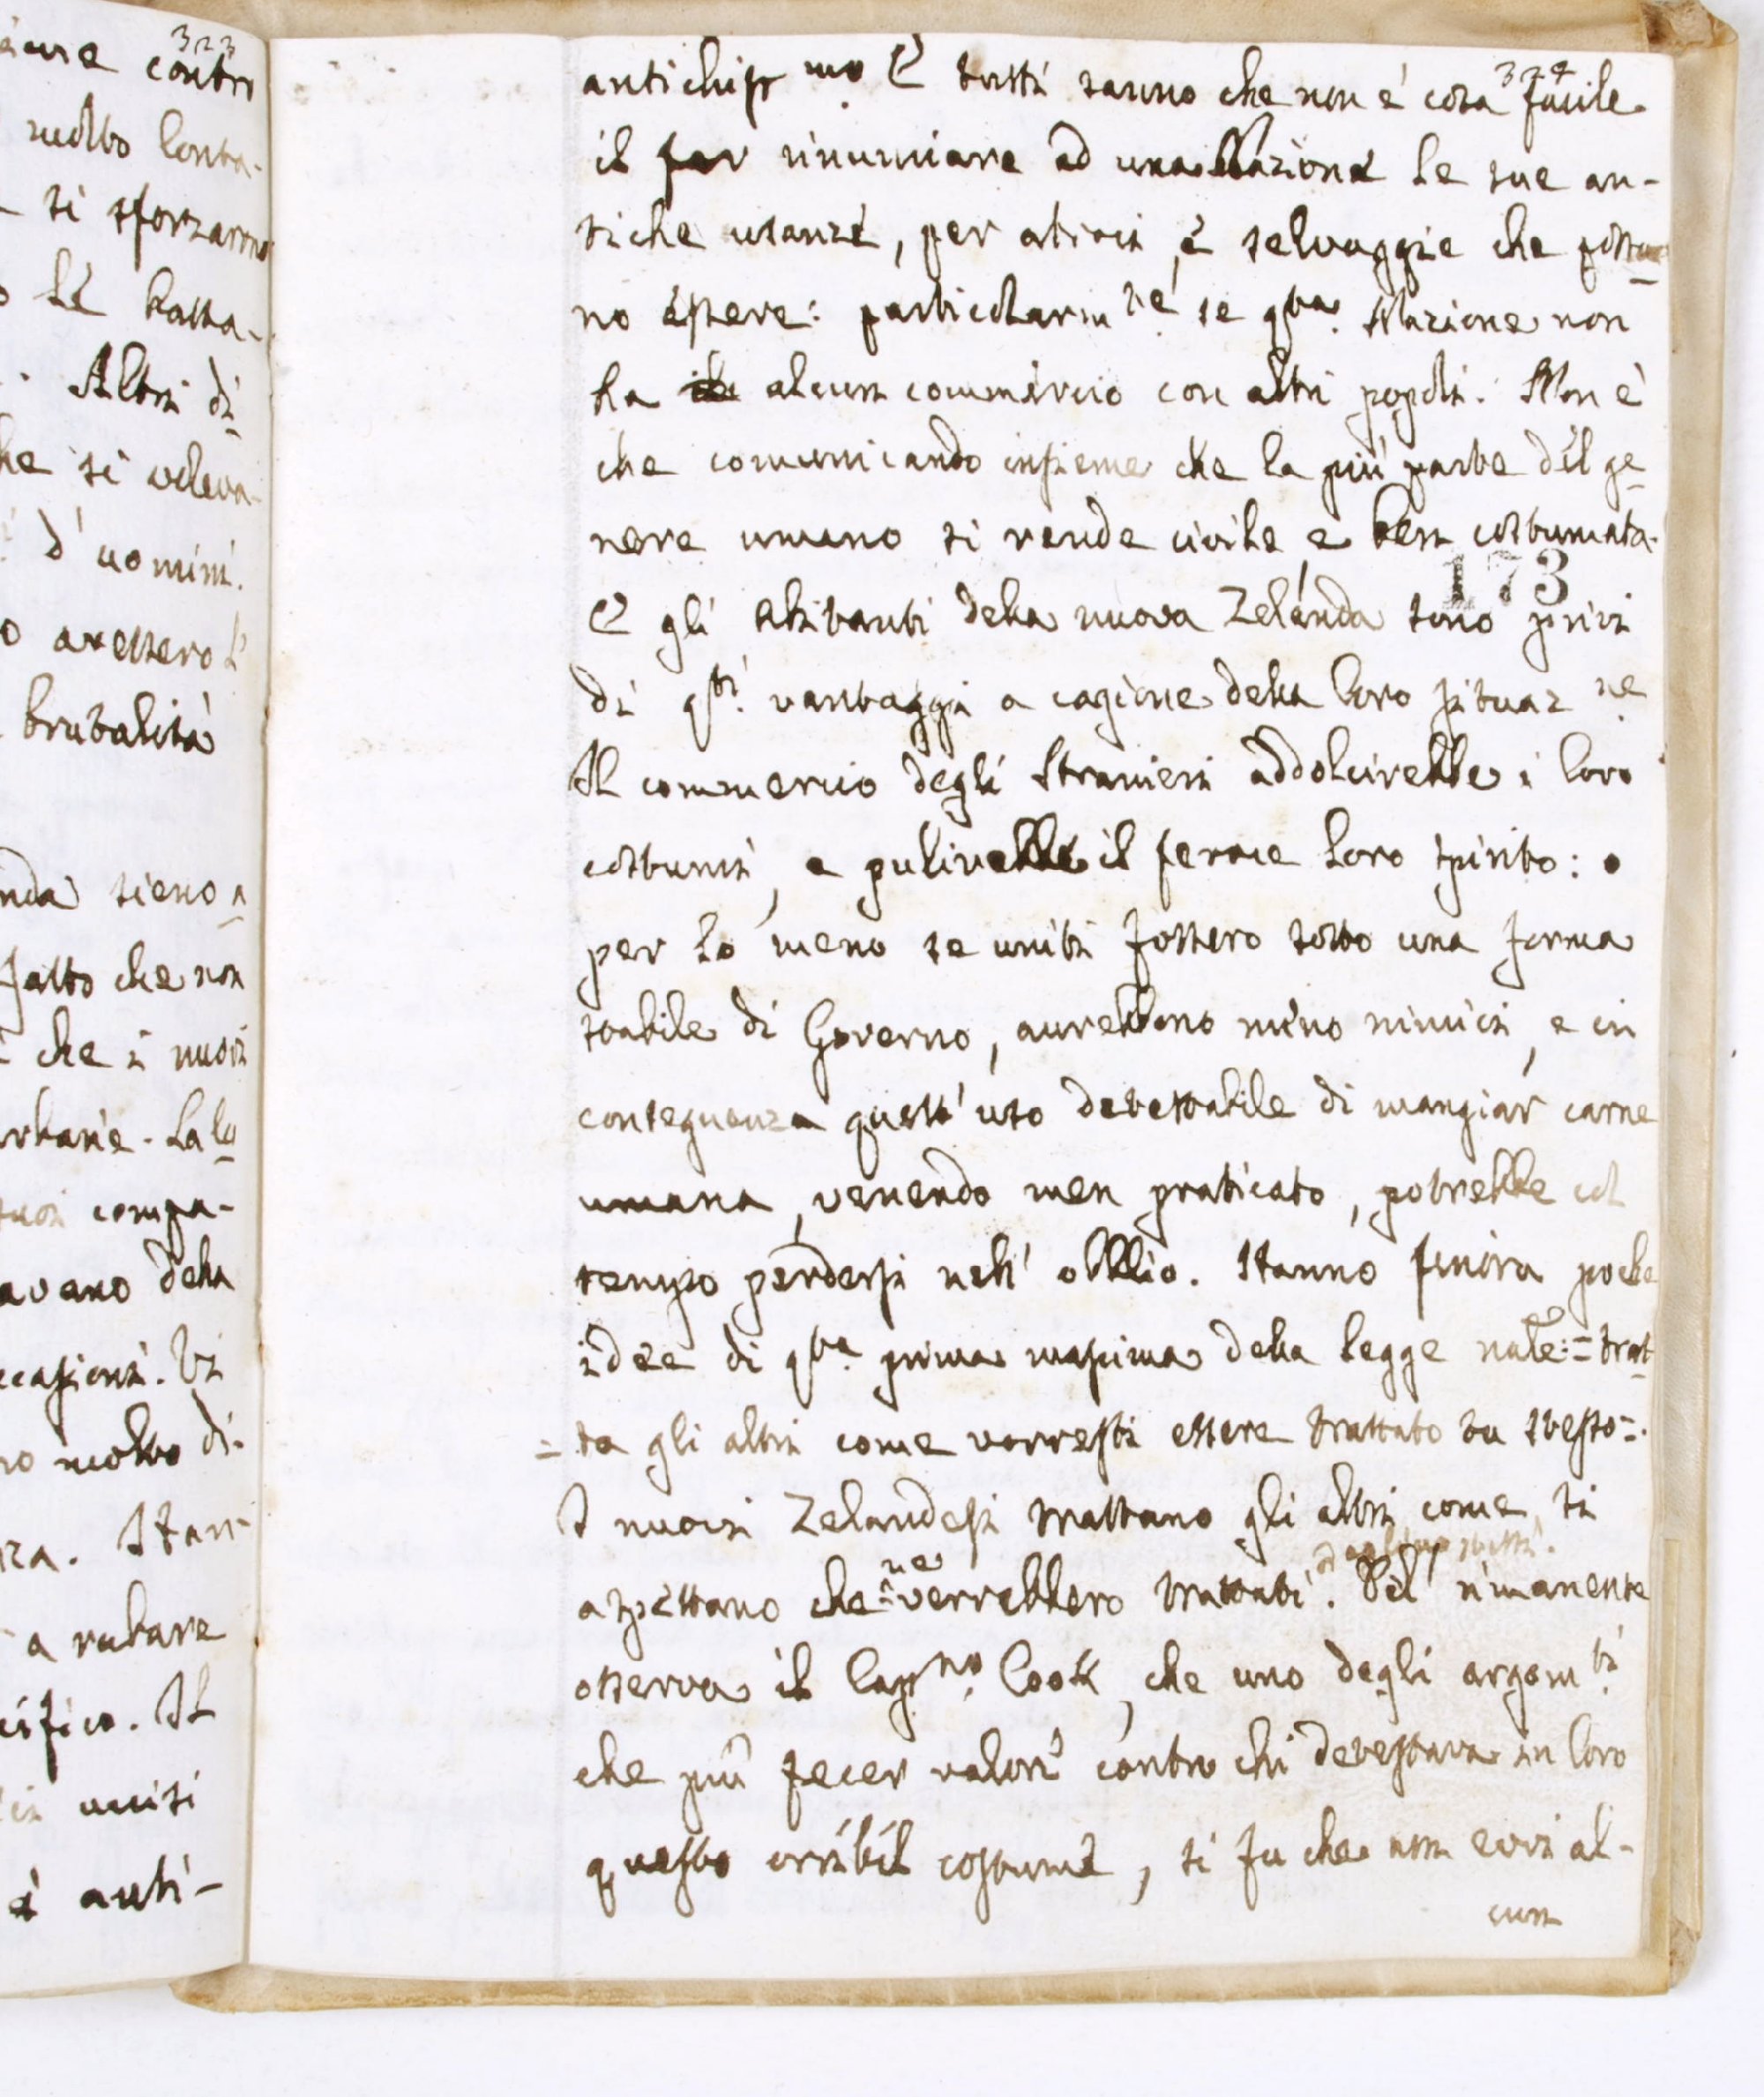 323
contro
molto lonta-
si sforzarono
le batta-
Altri di
he si voleva-
d'uomini.
o avessero l'
brutalità
nda sieno
fatto che non
che i nuovi
La
suoi compa-
avano della
ccasioni. Vi
no molto di-
nza. Stan-
a rubare
cifico. Il
uccisi
è anti-
324
antichiss.mo E tutti sanno che non è cosa facile
il far rinunciare ad una Nazione le sue an-
tiche usanze, per atroci, e selvaggie che possa
no essere: particolarm.te se q.ta Nazione non
ha alcun commercio con altri popoli. Non è
che comunicando insieme che la più parte del ge
nere umano si rende civile, e ben costumata.
173
E gli Abitanti della nuova Zelanda sono privi
di q.ti vantaggi a cagione della loro situaz.ne
Il commercio degli Stranieri addolcirebbe i loro
costumi, e pulirebbe il feroce loro spirito: o
per lo meno se uniti fossero sotto una forma
stabile di Governo, aurebbono meno nimici, e in
conseguenza quest'uso detestabile di mangiar carne
umana, venendo men praticato, potrebbe col
tempo perdersi nell'obblio. Hanno finora poche
idee di q.ta prima massima della legge nale:=trat
=ta gli altri come vorresti essere trattato tu stesso=.
I nuovi Zelandesi trattano gli altri come, si
aspettano che ne verrebbero trattati. Pel rimanente
osserva il Cap.no Cook, che uno degli argom.ti
che più fecer valere contro chi detestava in loro
questo orribil costume, si fu che non evvi al-
cun